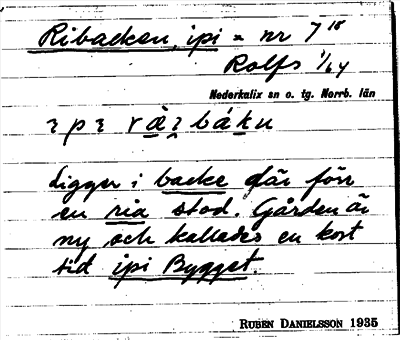 Ribacken, ipi = nr 7¹⁸
Rolfs 1/64
Nederkalix sn o. tg. Norrb. län
Ligger i backe där förr
en ria stod. Gården är
ny och kallades en kort
tid ipi Bygget.
RUBEN DANIELSSON 1935